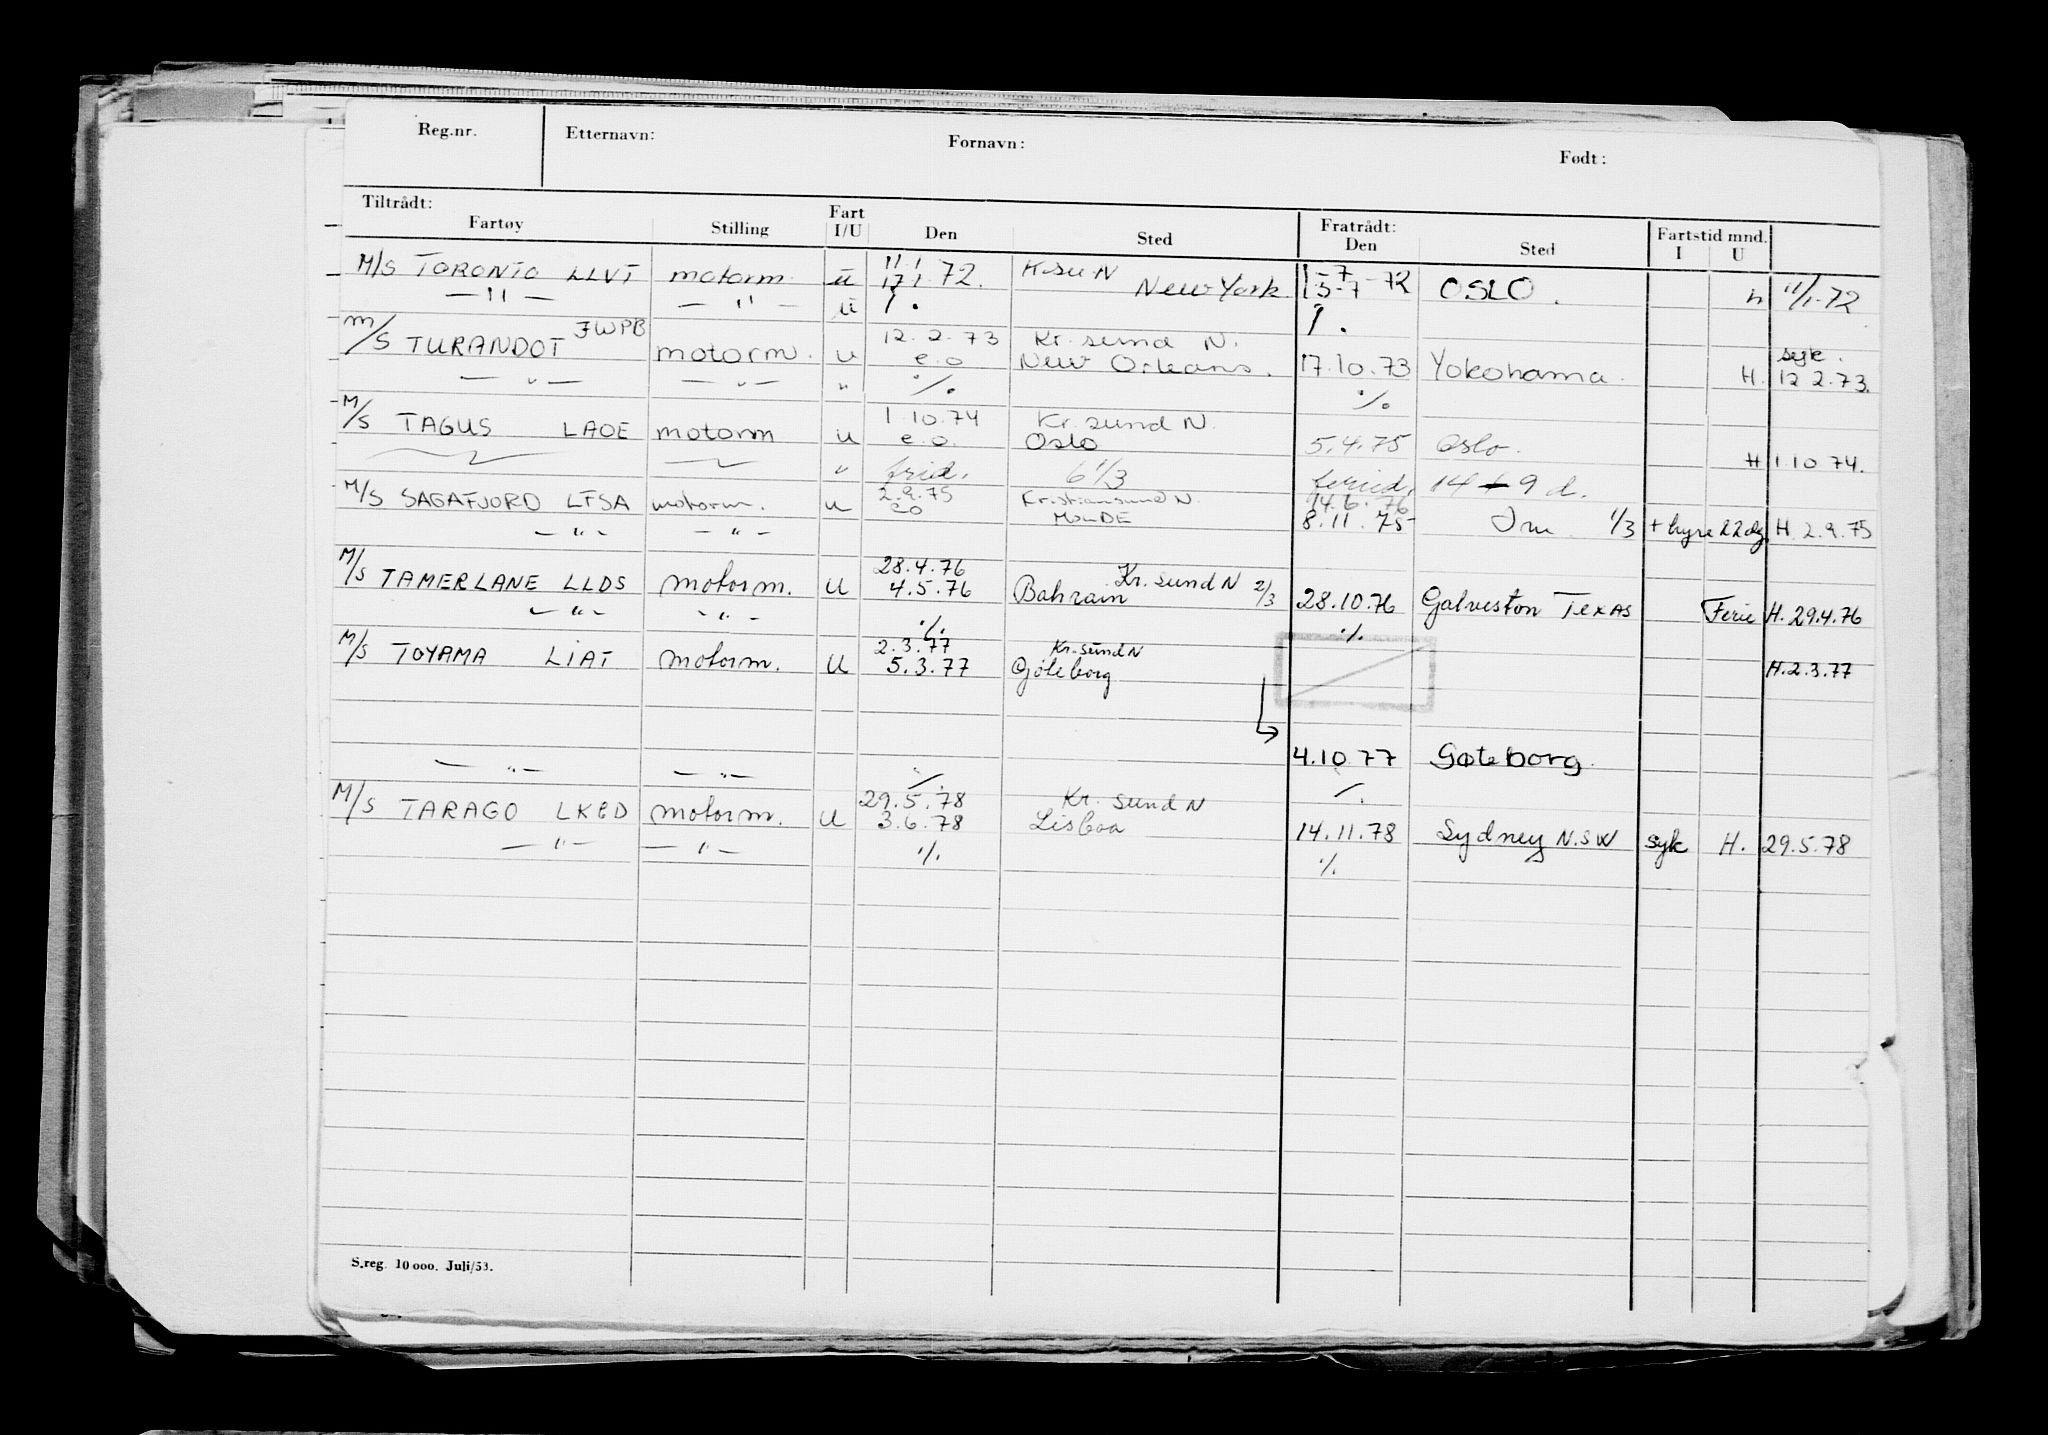 Reg.nr. Etternavn: Fornavn: Født:
Tiltrådt: Fratrådt:
Fartøy Stilling Fart I/U Den Sted Den Sted Fartstid mnd. I U
11.1 K.su.N 1-7
M/S TORONTO LLVT motorm. u 17.1.72. New York 15-7-72 OSLO. h 11/1-72
—"— —"— u
M/S TURANDOT JWPB 12.2.73 Kr.sund N. syk.
motorm. u e.o New Orleans. 17.10.73 Yokohama. H. 12 2.73.
—"— —"— " % %
M/S TAGUS LAOE 1.10.74 Kr.sund N.
motorm u e.o. Oslo 5.4.75 Oslo. H 1.10.74.
" frid. 6 1/3 14 9 d.
M/S SAGAFJORD LTSA motorm. u 2.9.75 Kristiansund N 14.6.76
eo MOLDE 8.11.75 1/3 + hyre 22dg H. 2.9.75
—"— —"—
28.4.76 Kr.sund N
M/S TAMERLANE LLDS motorm. U 4.5.76 Bahrain 2/3 28.10.76 Galveston TEXAS Ferie H. 29.4.76
—"— —"— % %
2.3.77 Kr.sund N
M/S TOYAMA LIAT motorm. U 5.3.77 Göteborg H.2.3.77
4.10.77 Gøteborg.
—"— —"— % %
29.5.78 Kr. sund N
M/S TARAGO motorm. U 3.6.78 Lisboa 14.11.78 Sydney N.S.W syk H. 29.5.78
—"— —"— % %
S.reg. 10 000. Juli/53.